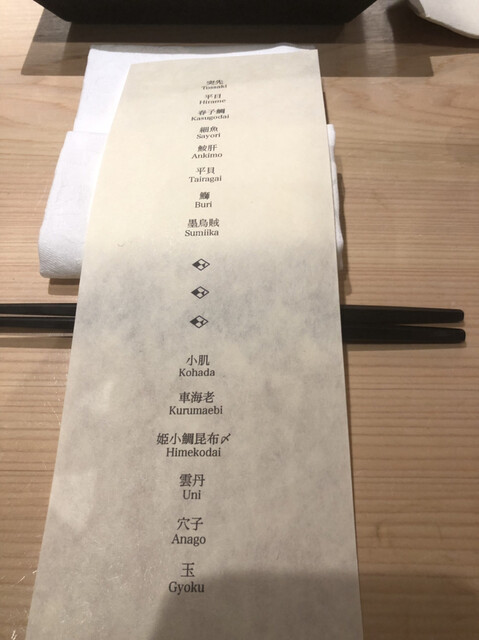 突先
Tossaki
平目
Hirame
春子鯛
Kasugodai
細魚
Sayori
鮟肝
Ankimo
平貝
Tairagai
鰤
Buri
墨烏賊
Sumiika
小肌
Kohada
車海老
Kurumaebi
姫小鯛昆布〆
Himekodai
雲丹
Uni
穴子
Anago
玉
Gyoku